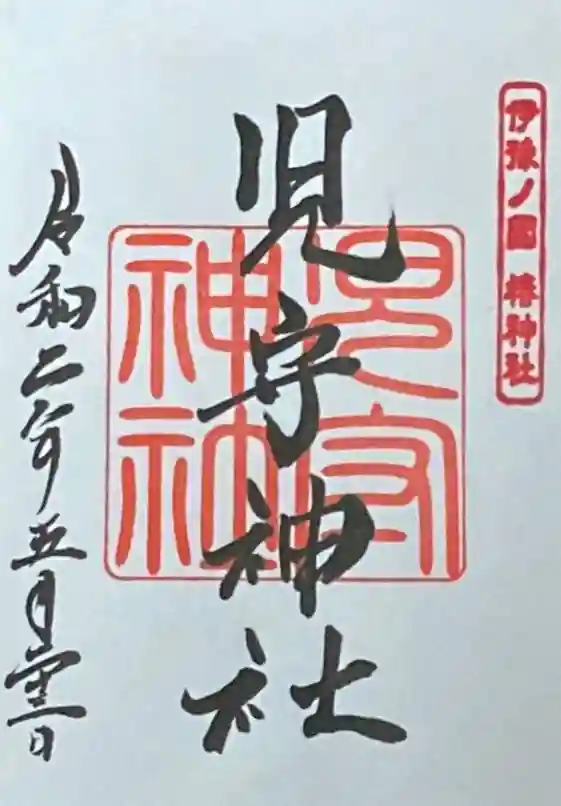 伊豫ノ國 椿神社
児守神社
児守
神社
令和二年五月壹日